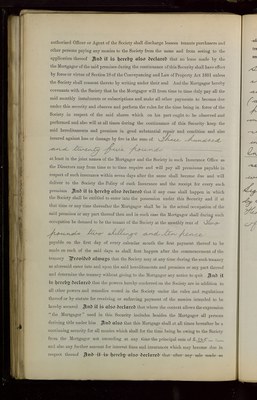 authorised Officer or Agent of the Society shall discharge lessees tenants purchasers and
other persons paying any monies to the Society from the same and from seeing to the
application thereof And it is hereby also declared that no lease made by the
the Mortgagor of the said premises during the continuance of this Security shall have effect
by force or virtue of Section 18 of the Conveyancing and Law of Property Act 1881 unless
the Society shall consent thereto by writing under their seal And the Mortgagor hereby
covenants with the Society that he the Mortgagor will from time to time duly pay all the
said monthly instalments or subscriptions and make all other payments to become due
under this security and observe and perform the rules for the time being in force of the
Society in respect of the said shares which on his part ought to be observed and
performed and also will at all times during the continuance of this Security keep the
said hereditaments and premises in good substantial repair and condition and also
insured against loss or damage by fire in the sum of Three hundred
and twenty four pounds
at least in the joint names of the Mortgagor and the Society in such Insurance Office as
the Directors may from time to time require and will pay all premiums payable in
respect of such insurance within seven days after the same shall become due and will
deliver to the Society the Policy of such Insurance and the receipt for every such
premium And it is hereby also declared that if any case shall happen in which
the Society shall be entitled to enter into the possession under this Security and if at
that time or any time thereafter the Mortgagor shall be in the actual occupation of the
said premises or any part thereof then and in such case the Mortgagor shall during such
occupation be deemed to be the tenant of the Society at the monthly rent of Two
pounds two shillings and ten pence
payable on the first day of every calendar month the first payment thereof to be
made on such of the said days as shall first happen after the commencement of the
tenancy Provided always that the Society may at any time during the such tenancy
to eforesaid enter into and upon the said hereditaments and premises or any part thereof
and determine the tenancy without giving to the Mortgagor any notice to quit And it
is hereby declared that the powers hereby conferred on the Society are in addition to
all other powers and remedies vested in the Society under the rules and regulations
thereof or by statute for receiving or enforcing payment of the monies intended to be
hereby secured And it is also declared that where the context allows the expression
"the Mortgagor" used in this Security includes besides the Mortgagor all persons
deriving title under him And also that this Mortgage shall at all times hereafter be a
continuing security for all monies which shall for the time being be owing to the Society
from the Mortgagor not exceeding at any time the principal sum of £
and also any further amount for interest fines and insurances which may become due in
respect thereof And it is hereby declared that after any sale made as